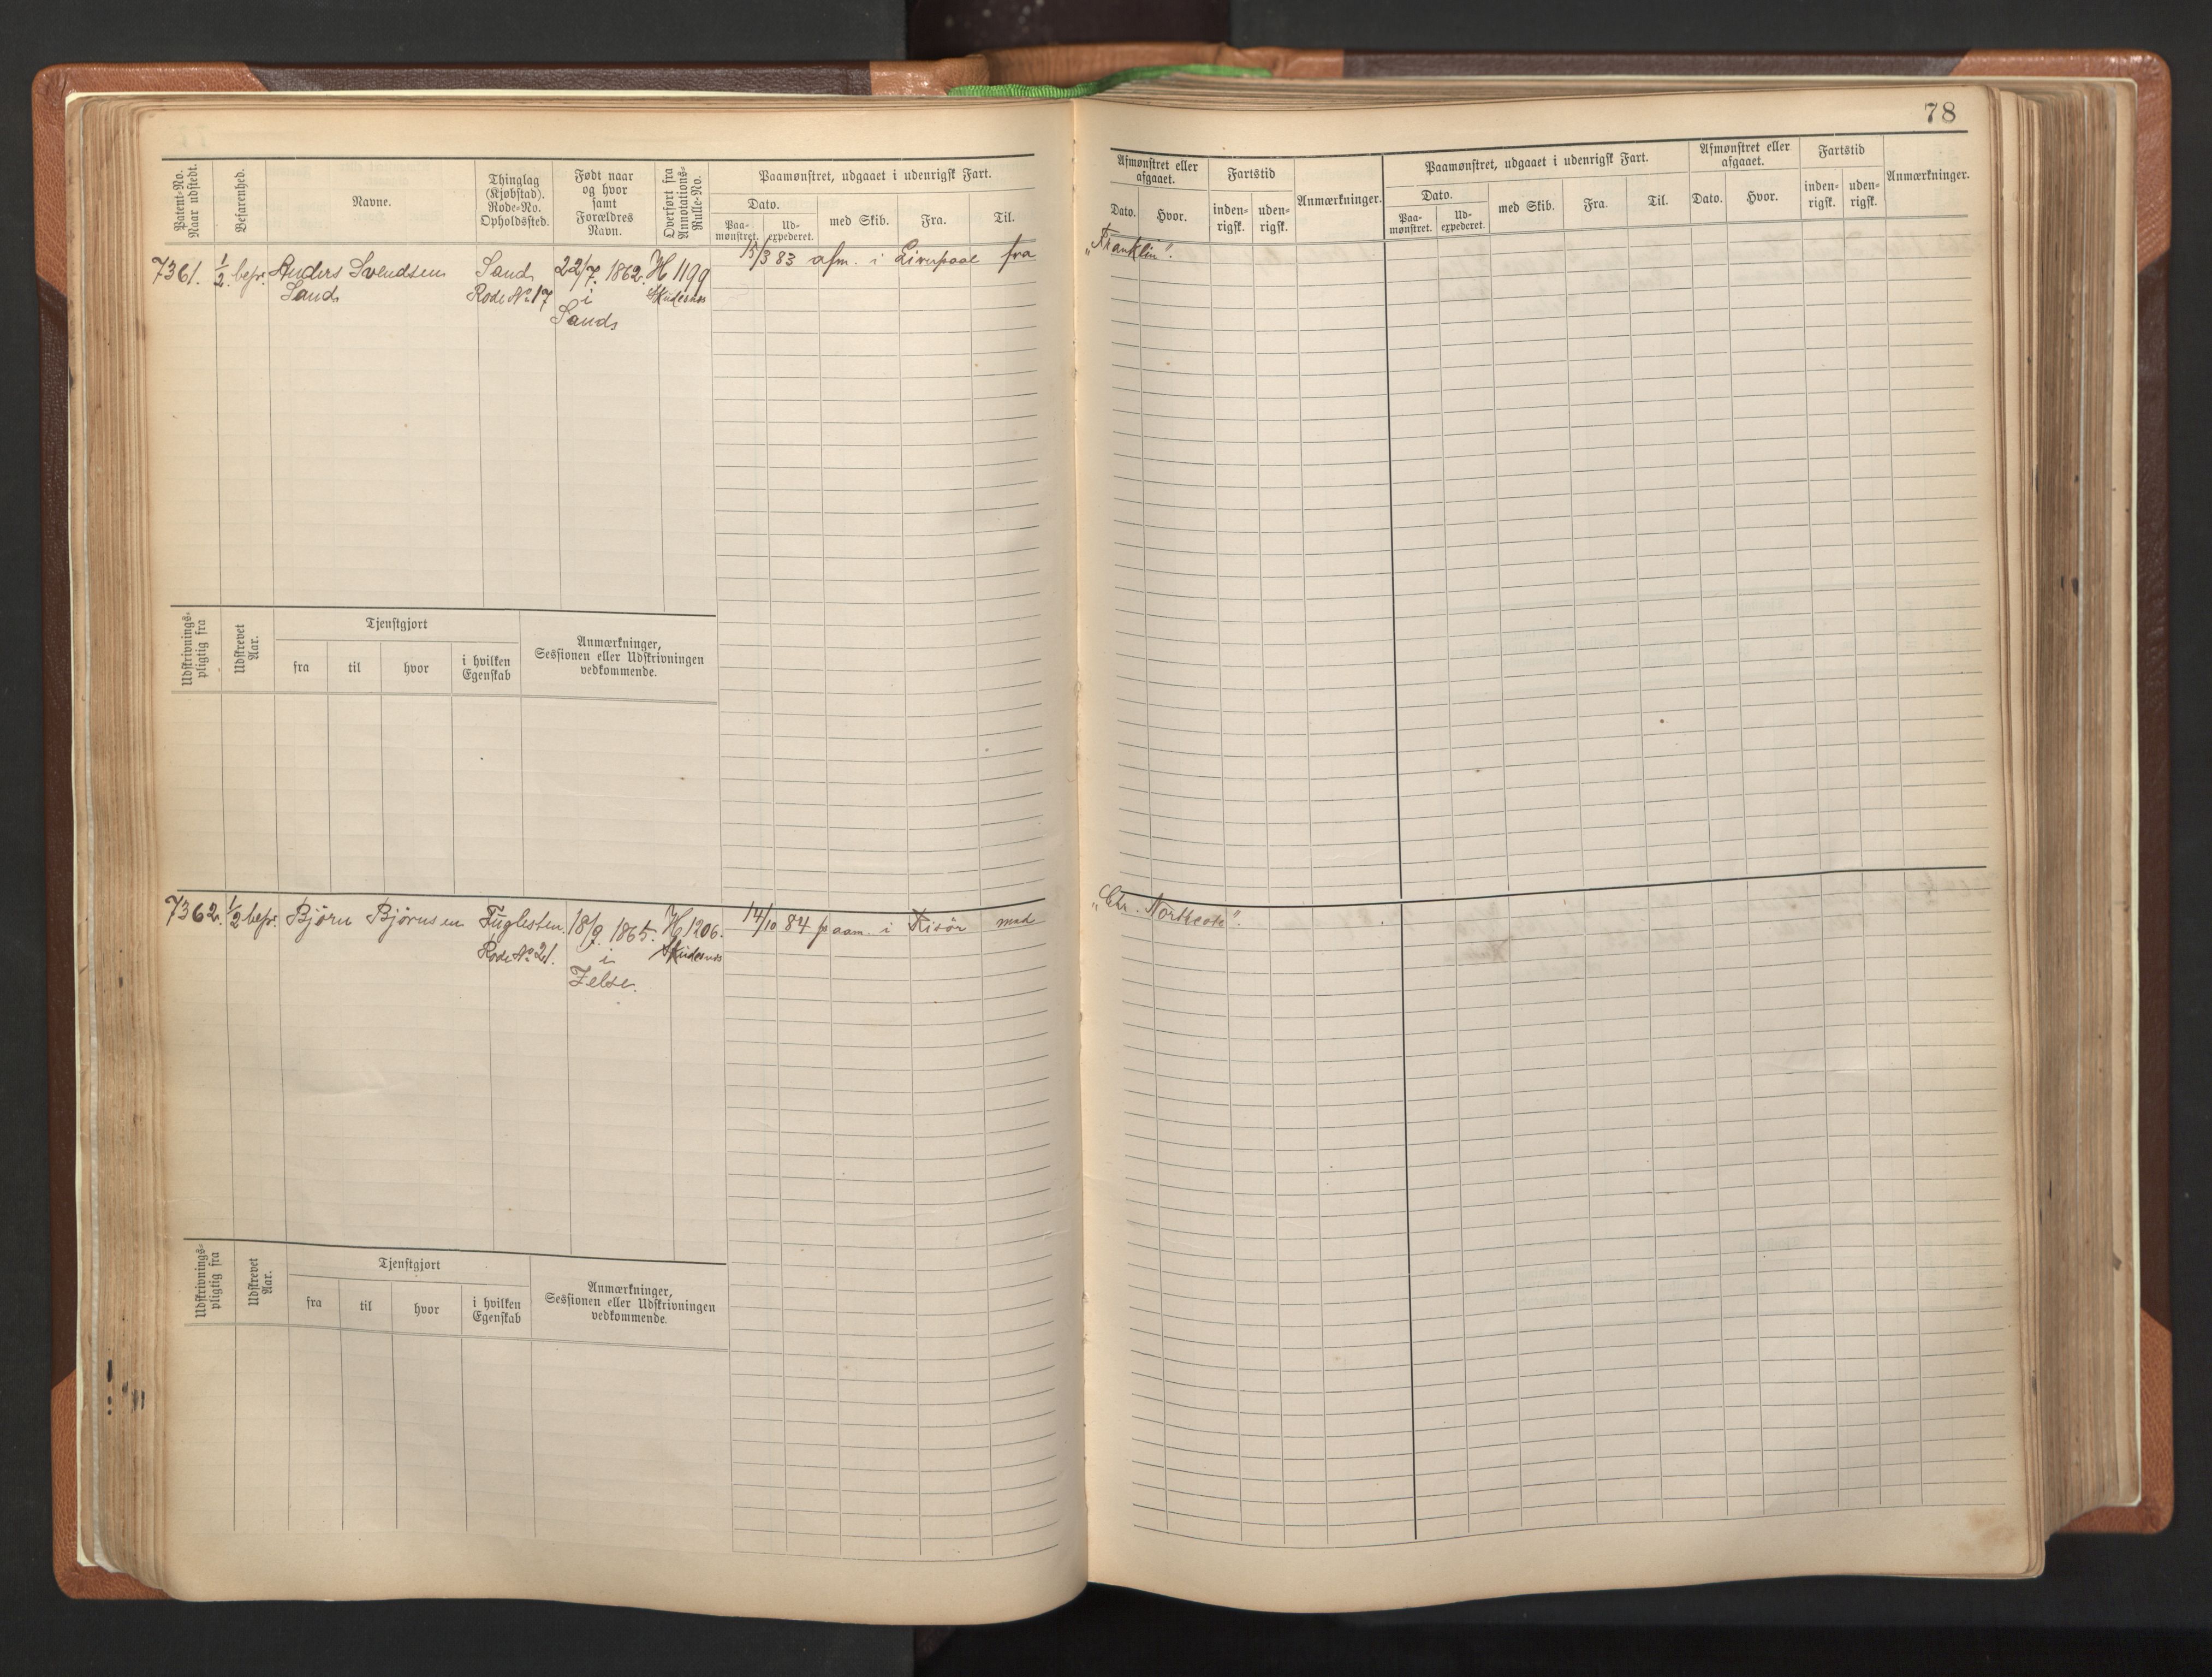 78
Patent-No. Naar udstedt.
Befarenhed.
Navne.
Thinglag (Kjøbstad). Rode-No. Opholdssted.
Født naar og hvor samt Forældres Navn.
Overført fra Annotations-Rulle-No.
Paamønstret, udgaaet i udenrigsk Fart.
Dato.
Paa-mønstret.
Ud-expederet.
med Skib.
Fra.
Til.
Afmønstret eller afgaaet.
Dato.
Hvor.
Fartstid
inden-rigsk.
uden-rigsk.
Anmærkninger.
Paamønstret, udgaaet i udenrigsk Fart.
Dato.
Paa-mønstret.
Ud-expederet.
med Skib.
Fra.
Til.
Afmønstret eller afgaaet.
Dato.
Hvor.
Fartstid
inden-rigsk.
uden-rigsk.
Anmærkninger.
7361. 1/2 bef. Anders Svendsen Sand 22/7. 1862. H 1199 15/3 83 afm. i Liverpool fra „Franklin".
Sand Rode No 17 i Skudesnes
Sand
Udskrivnings-pligtig fra
Udskrevet Aar.
Tjenstgjort
fra
til
hvor
i hvilken Egenskab
Anmærkninger, Sessionen eller Udskrivningen vedkommende.
7362. 1/2 bef. Bjørn Bjørnsen Fuglesten. 18/9. 1865. H 1206. 14/10 84 paam. i Risör med
Rode No 21. i Skudesnes
Jelse.
Udskrivnings-pligtig fra
Udskrevet Aar.
Tjenstgjort
fra
til
hvor
i hvilken Egenskab
Anmærkninger, Sessionen eller Udskrivningen vedkommende.